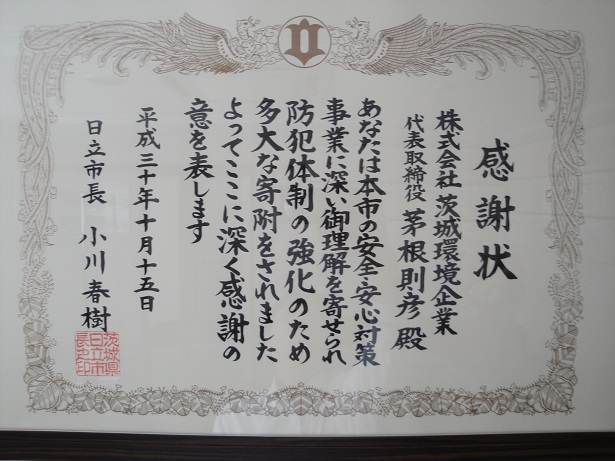 感謝状
株式会社 茨城環境企業
代表取締役 茅根則彦 殿
あなたは本市の安全・安心対策
事業に深い御理解を寄せられ
防犯体制の強化のため
多大な寄附をされました
よってここに深く感謝の
意を表します
平成三十年十月十五日
日立市長 小川春樹
茨城県
日立市
長之印